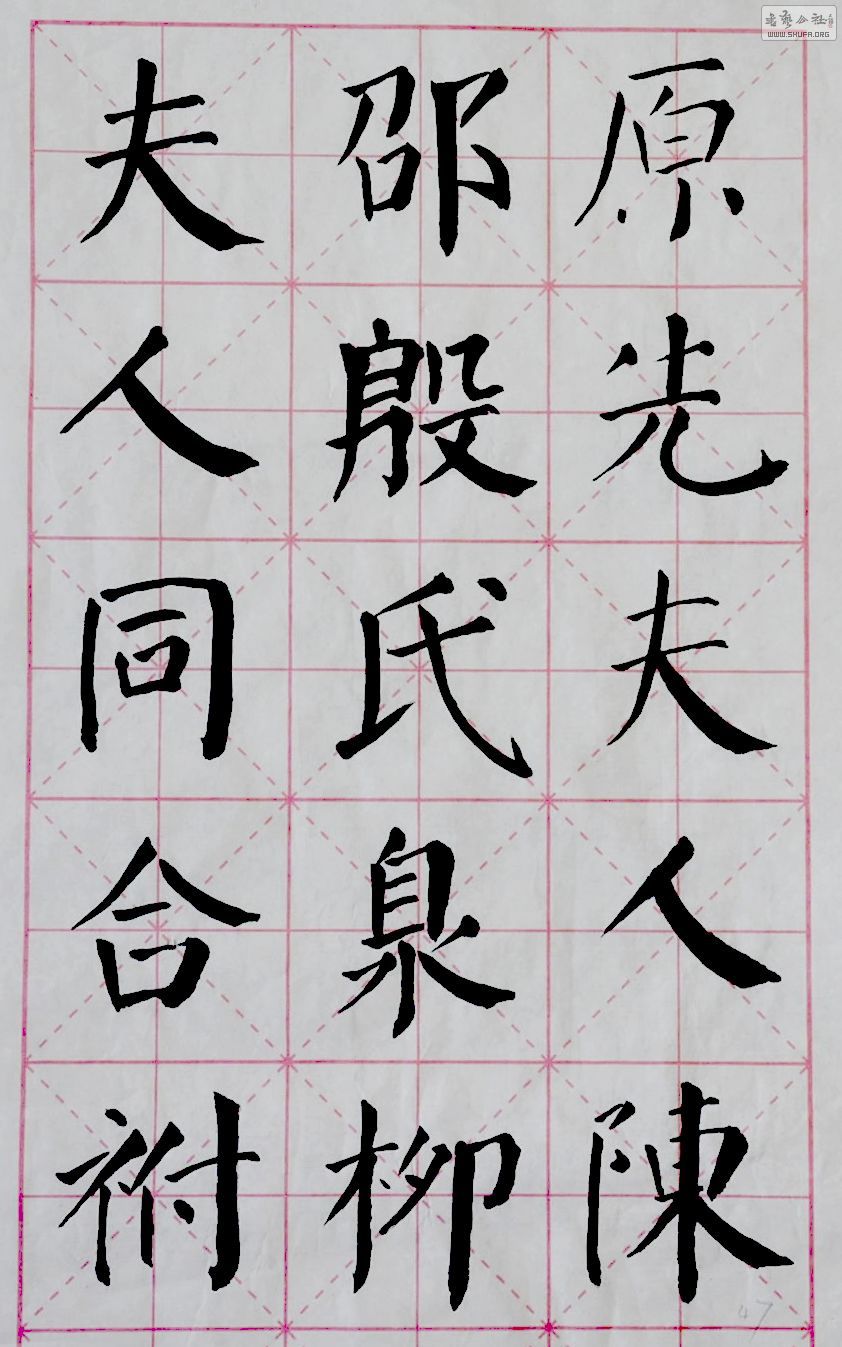 原先夫人陳
邵殷氏泉柳
夫人同合祔
书艺公社
WWW.SHUFA.ORG
47